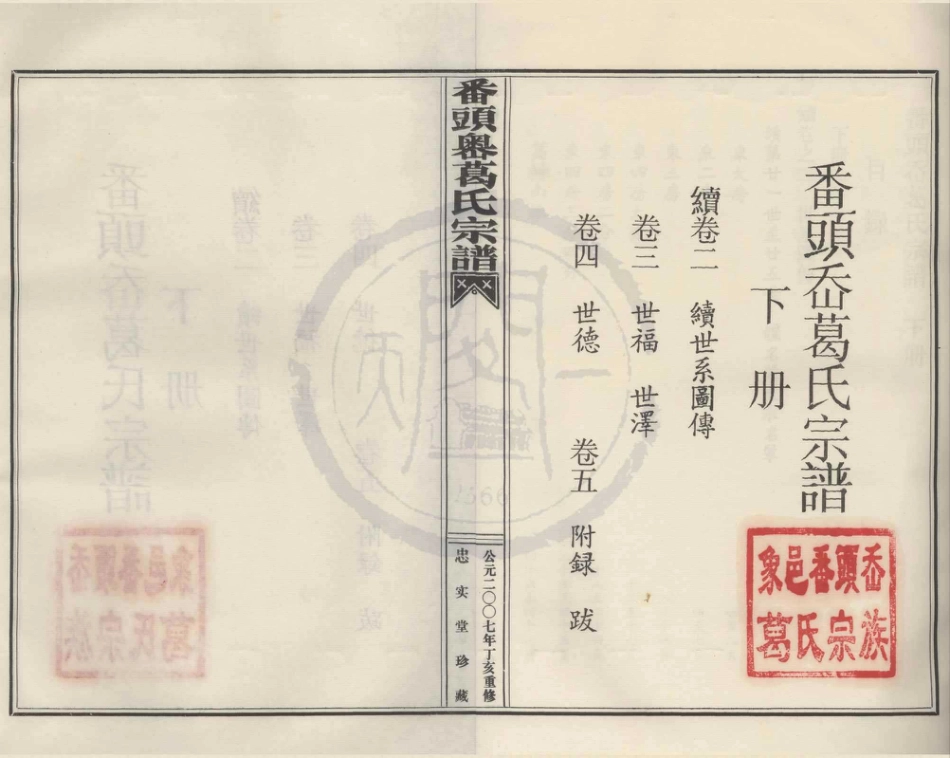 番頭岙葛氏宗譜
下册
續卷二 續世系圖傳
卷三 世福 世澤
卷四 世德 卷五 附録 跋
象邑番頭岙
葛氏宗族
番頭奧葛氏宗譜
公元二〇〇七年丁亥重修
忠实堂珍藏
天一閣
1566